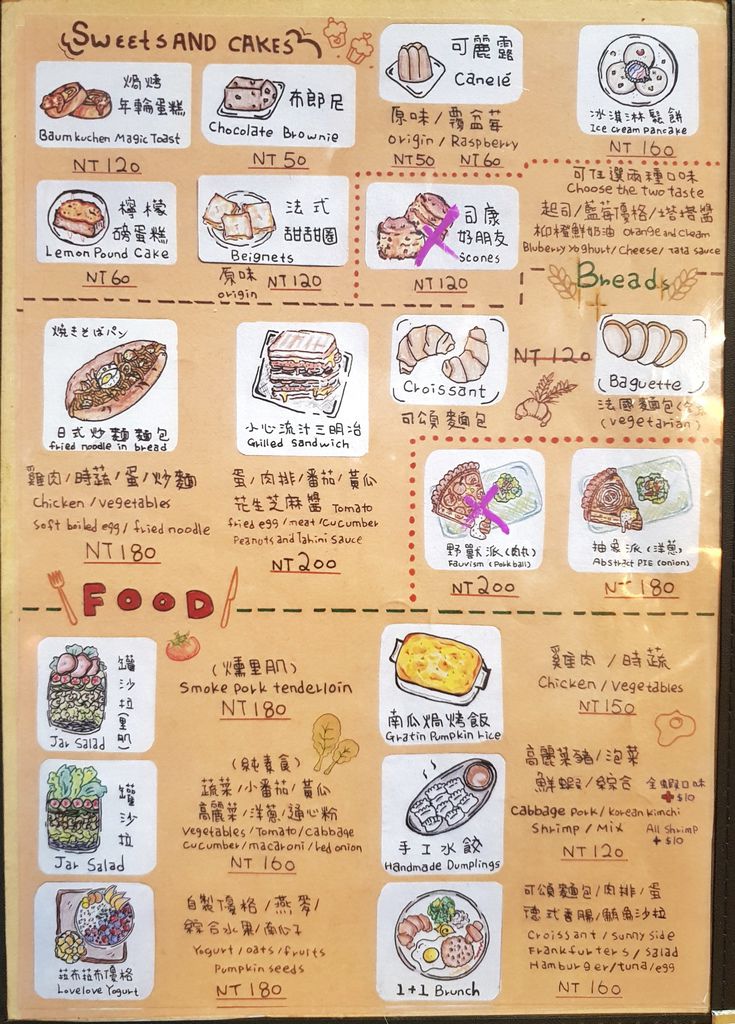 SWEETS AND CAKES
焗烤
年輪蛋糕
Baumkuchen Magic Toast
NT 120
布郎尼
Chocolate Brownie
NT 50
可麗露
Canelé
原味/覆盆莓
origin / Raspberry
NT50 NT60
冰淇淋鬆餅
Ice cream Pancake
NT 160
檸檬
磅蛋糕
Lemon Pound Cake
NT 60
法式
甜甜圈
Beignets
原味 NT120
origin
司康
好朋友
Scones
NT 120
可任選兩種口味
Choose the two taste
起司/藍莓優格/塔塔醬
柳橙鮮奶油 orange and cream
Bluberry Yoghurt/Cheese/Tata sauce
Breads
焼きそばパン
日式炒麵麵包
fried noodle in bread
雞肉/時蔬/蛋/炒麵
Chicken / vegetables
soft boiled egg / fried noodle
NT 180
小心流汁三明治
Grilled Sandwich
蛋/肉排/番茄/黃瓜
花生芝麻醬 Tomato
fried egg / meat / cucumber
Peanuts and Tahini sauce
NT 200
Croissant
可頌麵包
NT 120
Baguette
法國麵包
(vegetarian)
野獸派(肉丸)
Fauvism (Porkball)
NT 200
抽象派(洋蔥)
Abstract PIE (onion)
NT 180
FOOD
罐沙拉(里肌)
Jar Salad
(燻里肌)
Smoke pork tenderloin
NT 180
南瓜焗烤飯
Gratin Pumpkin rice
雞肉/時蔬
Chicken / vegetables
NT 150
罐沙拉
Jar Salad
(純素食)
蔬菜/小番茄/黃瓜
高麗菜/洋蔥/通心粉
vegetables / Tomato / cabbage
cucumber / macaroni / red onion
NT 160
手工水餃
Handmade Dumplings
高麗菜豬/泡菜
鮮蝦/綜合 全蝦口味
+$10
Cabbage pork / Korean kimchi
Shrimp / Mix All Shrimp
+ $10
NT 120
菈布菈布優格
Lovelove Yogurt
自製優格/燕麥/
綜合水果/南瓜子
Yogurt / oats / fruits
Pumpkin seeds
NT 180
1+1 Brunch
可頌麵包/肉排/蛋
德式香腸/鮪魚沙拉
Croissant / sunny side
Frankfurters / salad
Hamburger / tuna / egg
NT 160